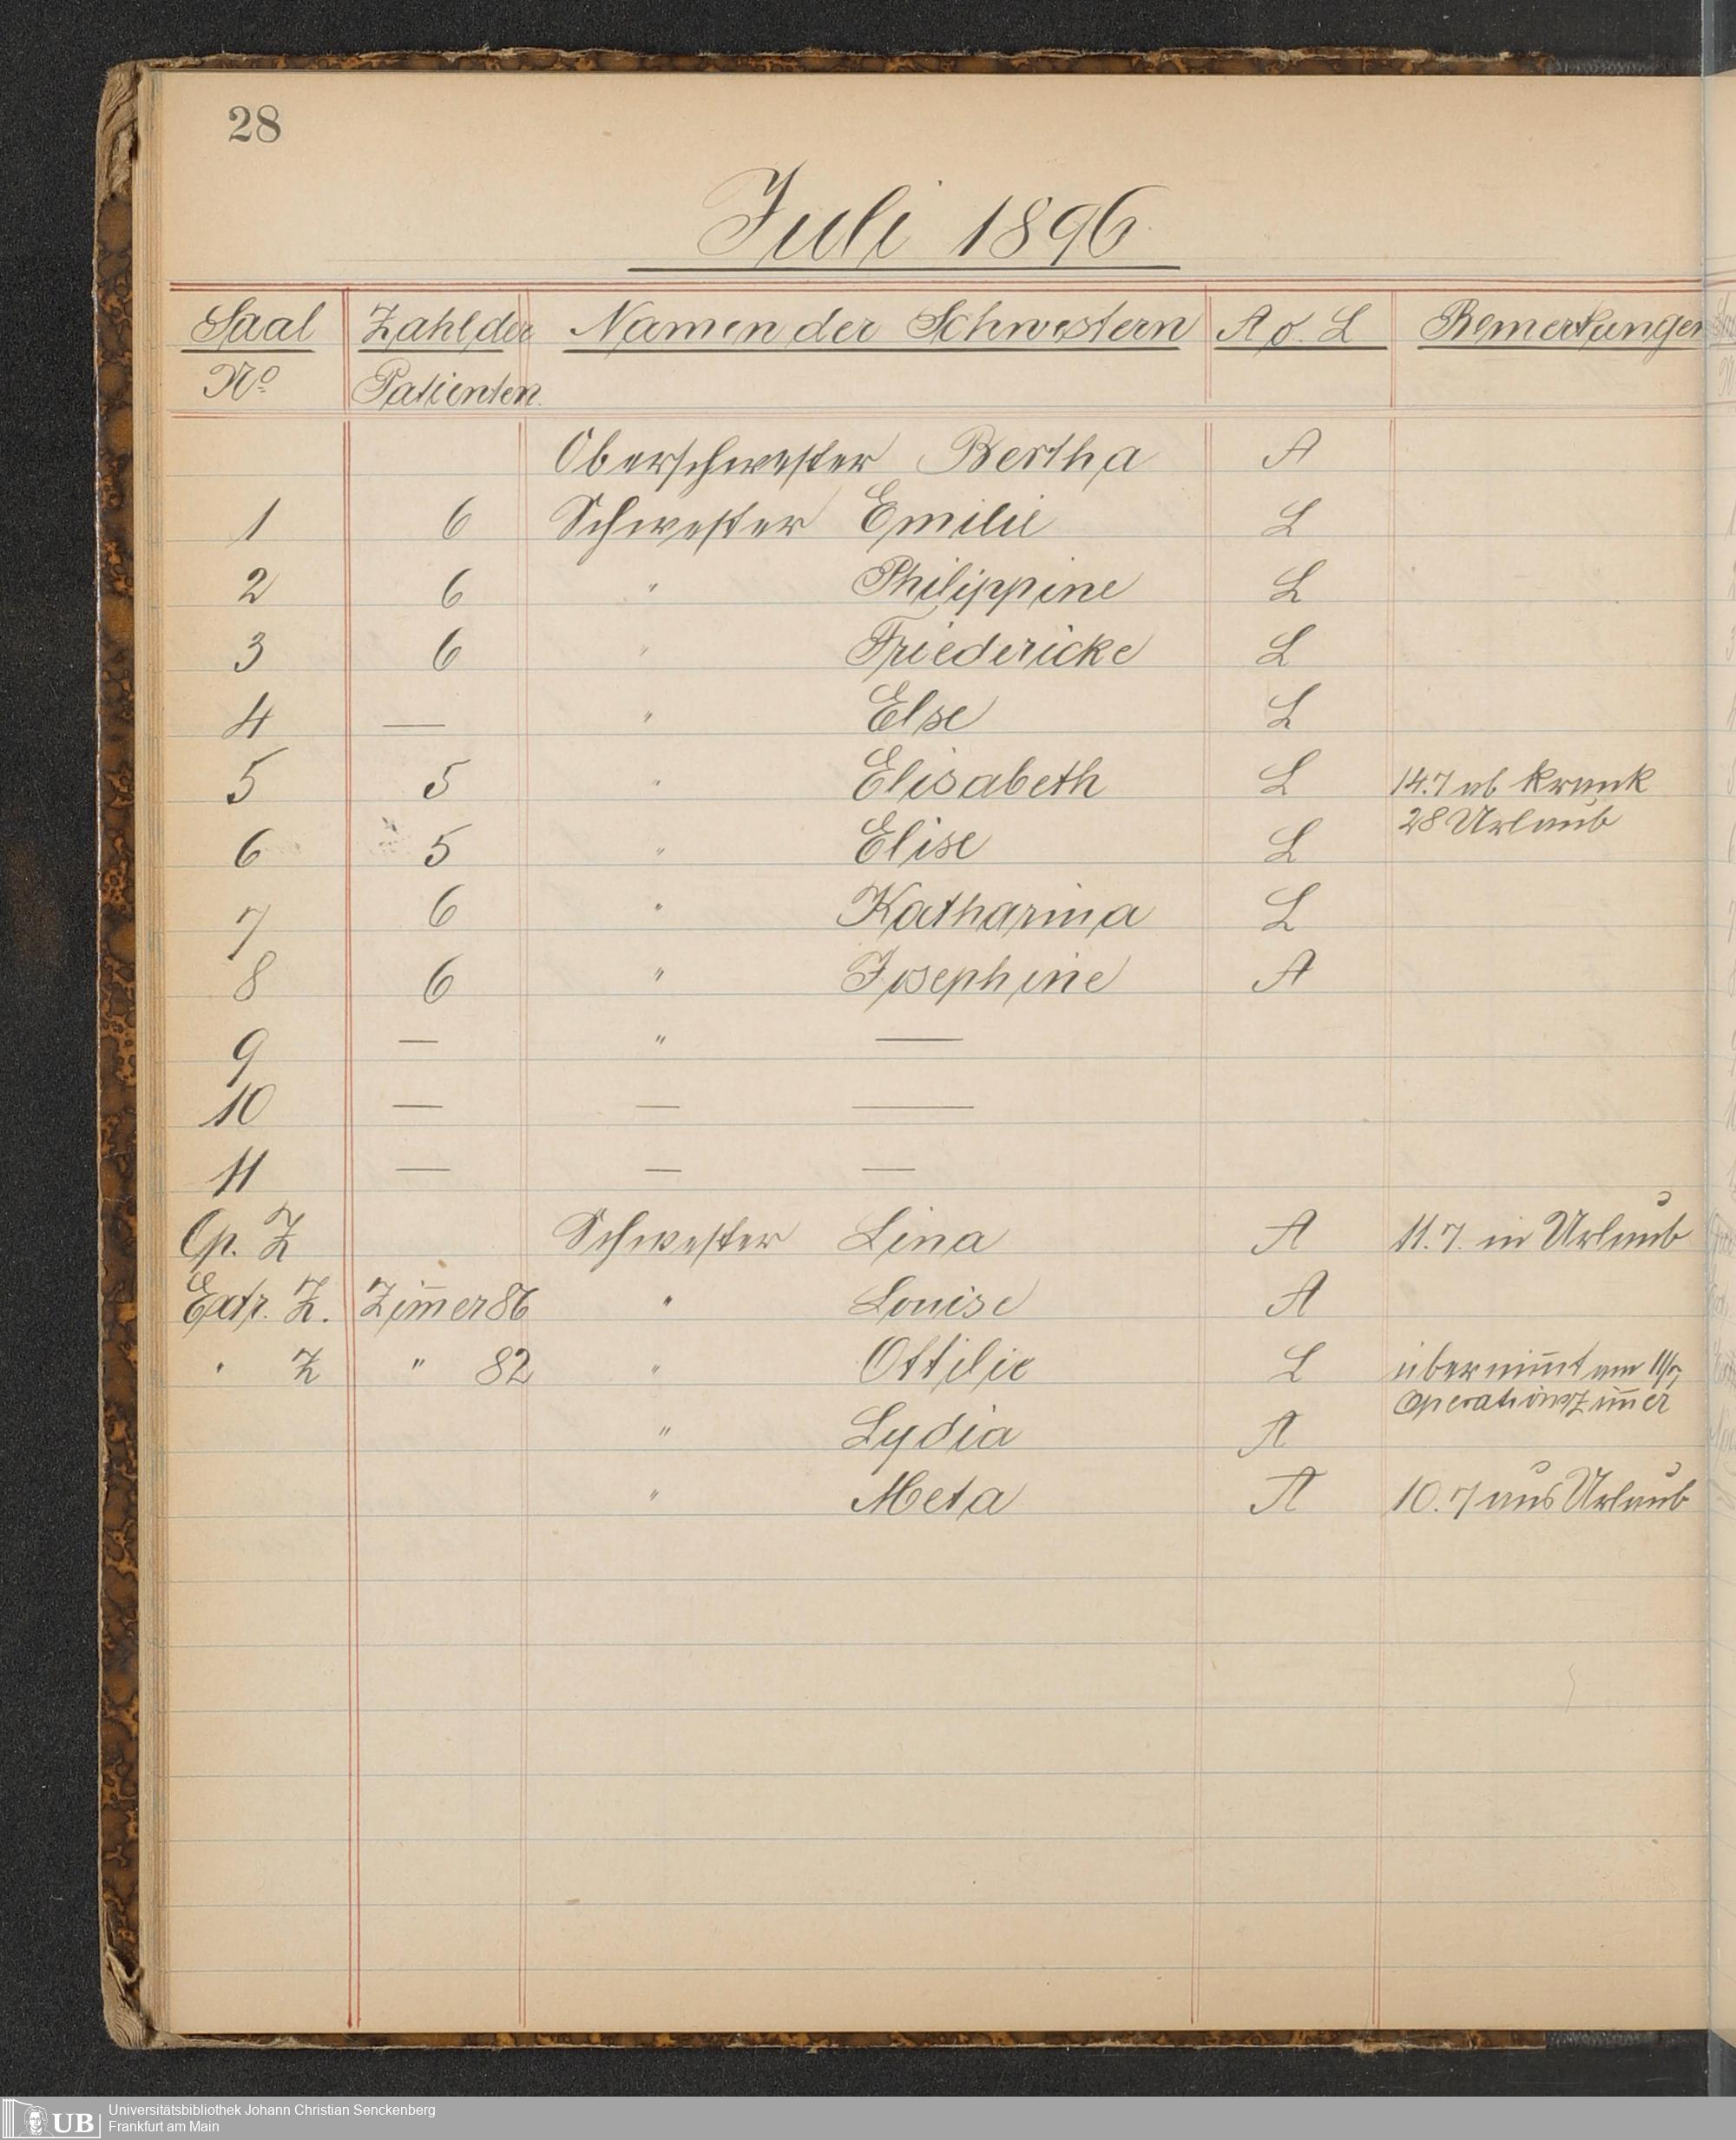 28
Juli 1896
Saal Zahl der Namen der Schwestern A o. L Bemerkungen
No. Patienten.
Oberschwester Bertha A
1 6 Schwester Emilie L
2 6 " Philippine L
3 6 " Friedericke L
4 — " Else L
5 5 " Elisabeth L 14.7 ab krank
28 Urlaub
6 5 " Elise L
7 6 " Katharina L
8 6 " Josephine A
9 — " —
10 — — —
11 — — —
Op. Z Schwester Lina A 11.7. in Urlaub
Extr. Z. Zim̅er 86 " Louise A
" Z " 82 " Ottilie L übernim̅t am 11/7
Operationszim̅er
" Lydia A
" Meta A 10.7 aus Urlaub
UB Universitätsbibliothek Johann Christian Senckenberg
Frankfurt am Main